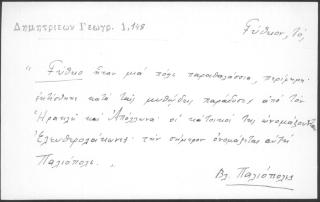 Δημητριεων Γεωγρ. 1,148
Γύθιον, Τό,
"Γύθιο ἦταν μιά πόλις παραθαλάσσια, περίφημη.
ἐκτίσθηκε κατά τάς μυθώδεις παραδόσεις ἀπό τόν
Ἡρακλῆ καί Ἀπόλλωνα· οἱ κάτοικοί της ὠνομάζονταν
Ἐλευθερολάκωνες· τήν σήμερον ὀνομάζεται αὐτή
Παλιόπολι."
Βλ. Παλιόπολις